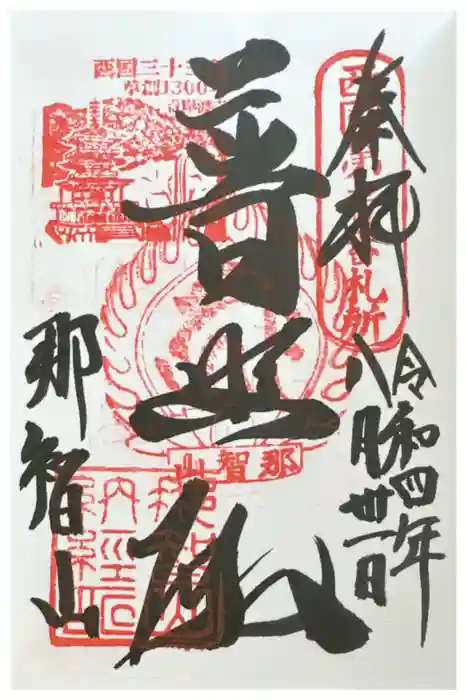 奉拝
西国第一番札所
令和四年
八月卅一日
普照殿
西国三十三
草創1300
那智山
那智山